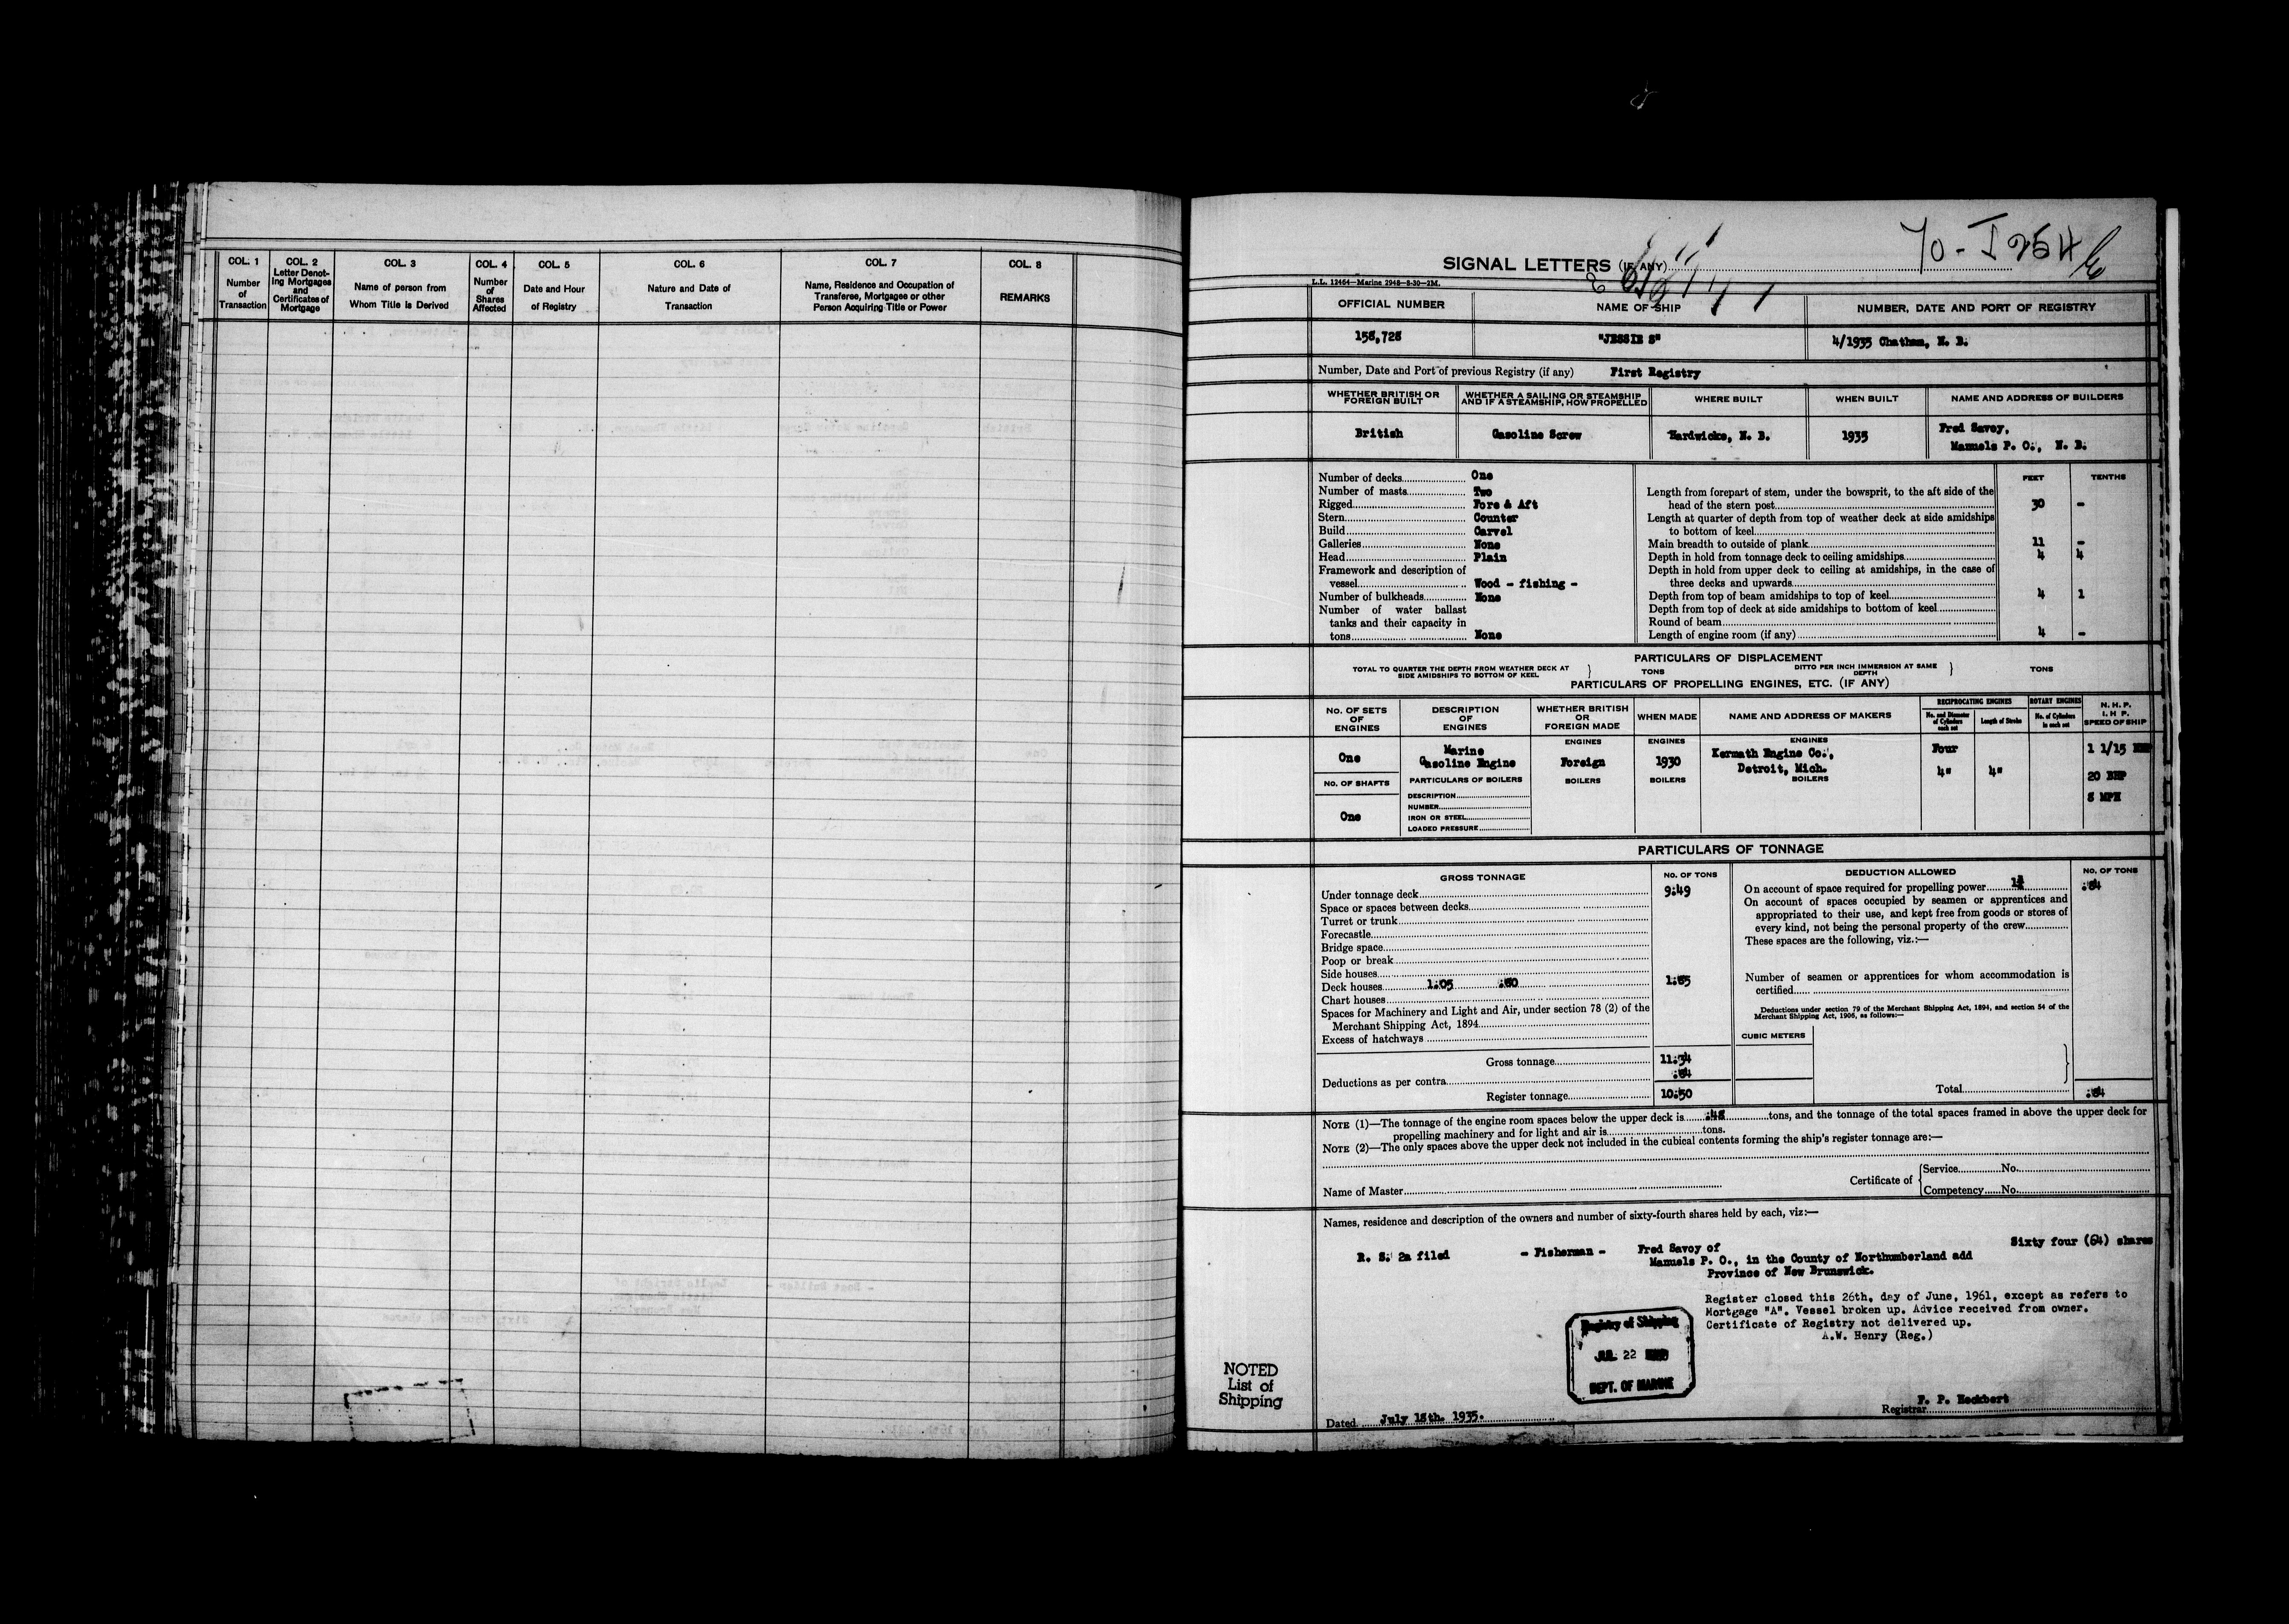 COL. 1
Number
of
Transaction
COL. 2
Letter Denot-
ing Mortgages
and
Certificates of
Mortgage
COL. 3
Name of person from
Whom Title is Derived
COL. 4
Number
of
Shares
Affected
COL. 5
Date and Hour
of Registry
COL. 6
Nature and Date of
Transaction
COL. 7
Name, Residence and Occupation of
Transferee, Mortgagee or other
Person Acquiring Title or Power
COL. 8
REMARKS
SIGNAL LETTERS (IF ANY)
L.L. 12464—Marine 2948—8-30—2M.
OFFICIAL NUMBER NAME OF SHIP NUMBER, DATE AND PORT OF REGISTRY
"JESSIE S" 4/1935 Chatham, N. B.
Number, Date and Port of previous Registry (if any) First Registry
WHETHER BRITISH OR
FOREIGN BUILT
WHETHER A SAILING OR STEAMSHIP
AND IF A STEAMSHIP, HOW PROPELLED
WHERE BUILT WHEN BUILT NAME AND ADDRESS OF BUILDERS
British Gasoline Screw Hardwicke, N. B. 1935 Fred Savoy,
Manuels P. O., N. B.
FEET TENTHS
Number of decks One
Number of masts Two
Rigged Fore & Aft
Stern Counter
Build Carvel
Galleries None
Head Plain
Framework and description of
vessel Wood - fishing -
Number of bulkheads None
Number of water ballast
tanks and their capacity in
tons None
Length from forepart of stem, under the bowsprit, to the aft side of the
head of the stern post 30 -
Length at quarter of depth from top of weather deck at side amidships
to bottom of keel
Main breadth to outside of plank 11 -
Depth in hold from tonnage deck to ceiling amidships 4 4
Depth in hold from upper deck to ceiling at amidships, in the case of
three decks and upwards
Depth from top of beam amidships to top of keel 4 1
Depth from top of deck at side amidships to bottom of keel
Round of beam
Length of engine room (if any) 4 -
PARTICULARS OF DISPLACEMENT
TOTAL TO QUARTER THE DEPTH FROM WEATHER DECK AT
SIDE AMIDSHIPS TO BOTTOM OF KEEL
TONS
DITTO PER INCH IMMERSION AT SAME
DEPTH
TONS
PARTICULARS OF PROPELLING ENGINES, ETC. (IF ANY)
No. OF SETS
OF
ENGINES
DESCRIPTION
OF
ENGINES
WHETHER BRITISH
OR
FOREIGN MADE
WHEN MADE
NAME AND ADDRESS OF MAKERS
RECIPROCATING ENGINES
No. and Diameter
of Cylinders
each set
Length of Stroke
ROTARY ENGINES
No. of Cylinders
in each set
N. H. P.
I. H. P.
SPEED OF SHIP
ENGINES ENGINES ENGINES
One
Marine
Gasoline Engine
Foreign 1930
Kermath Engine Co.,
Detroit, Mich.
Four
4" 4"
1 1/15
20 BHP
8 MPH
NO. OF SHAFTS PARTICULARS OF BOILERS BOILERS BOILERS BOILERS
One
DESCRIPTION
NUMBER
IRON OR STEEL
LOADED PRESSURE
PARTICULARS OF TONNAGE
GROSS TONNAGE NO. OF TONS
Under tonnage deck 9.49
Space or spaces between decks
Turret or trunk
Forecastle
Bridge space
Poop or break
Side houses
Deck houses 1.05 .80 1.85
Chart houses
Spaces for Machinery and Light and Air, under section 78 (2) of the
Merchant Shipping Act, 1894
Excess of hatchways
Gross tonnage 11.34
Deductions as per contra .84
Register tonnage 10.50
DEDUCTION ALLOWED NO. OF TONS
On account of space required for propelling power .84
On account of spaces occupied by seamen or apprentices and
appropriated to their use, and kept free from goods or stores of
every kind, not being the personal property of the crew
These spaces are the following, viz.:—
Number of seamen or apprentices for whom accommodation is
certified
Deductions under section 79 of the Merchant Shipping Act, 1894, and section 54 of the
Merchant Shipping Act, 1906, as follows:—
CUBIC METERS
Total .84
NOTE (1)—The tonnage of the engine room spaces below the upper deck is .48 tons, and the tonnage of the total spaces framed in above the upper deck for
propelling machinery and for light and air is tons.
NOTE (2)—The only spaces above the upper deck not included in the cubical contents forming the ship's register tonnage are:—
Name of Master
Certificate of
Service No.
Competency No.
Names, residence and description of the owners and number of sixty-fourth shares held by each, viz:—
R. S. 2a filed - Fisherman - Fred Savoy of Sixty four (64) shares
Manuels P. O., in the County of Northumberland add
Province of New Brunswick.
Register closed this 26th. day of June, 1961, except as refers to
Mortgage "A". Vessel broken up. Advice received from owner.
Certificate of Registry not delivered up.
A.W. Henry (Reg.)
Registry of Shipping
JUL 22
DEPT. OF MARINE
NOTED
List of
Shipping
Dated July 18th. 1935.
F. P. Heckbert
Registrar